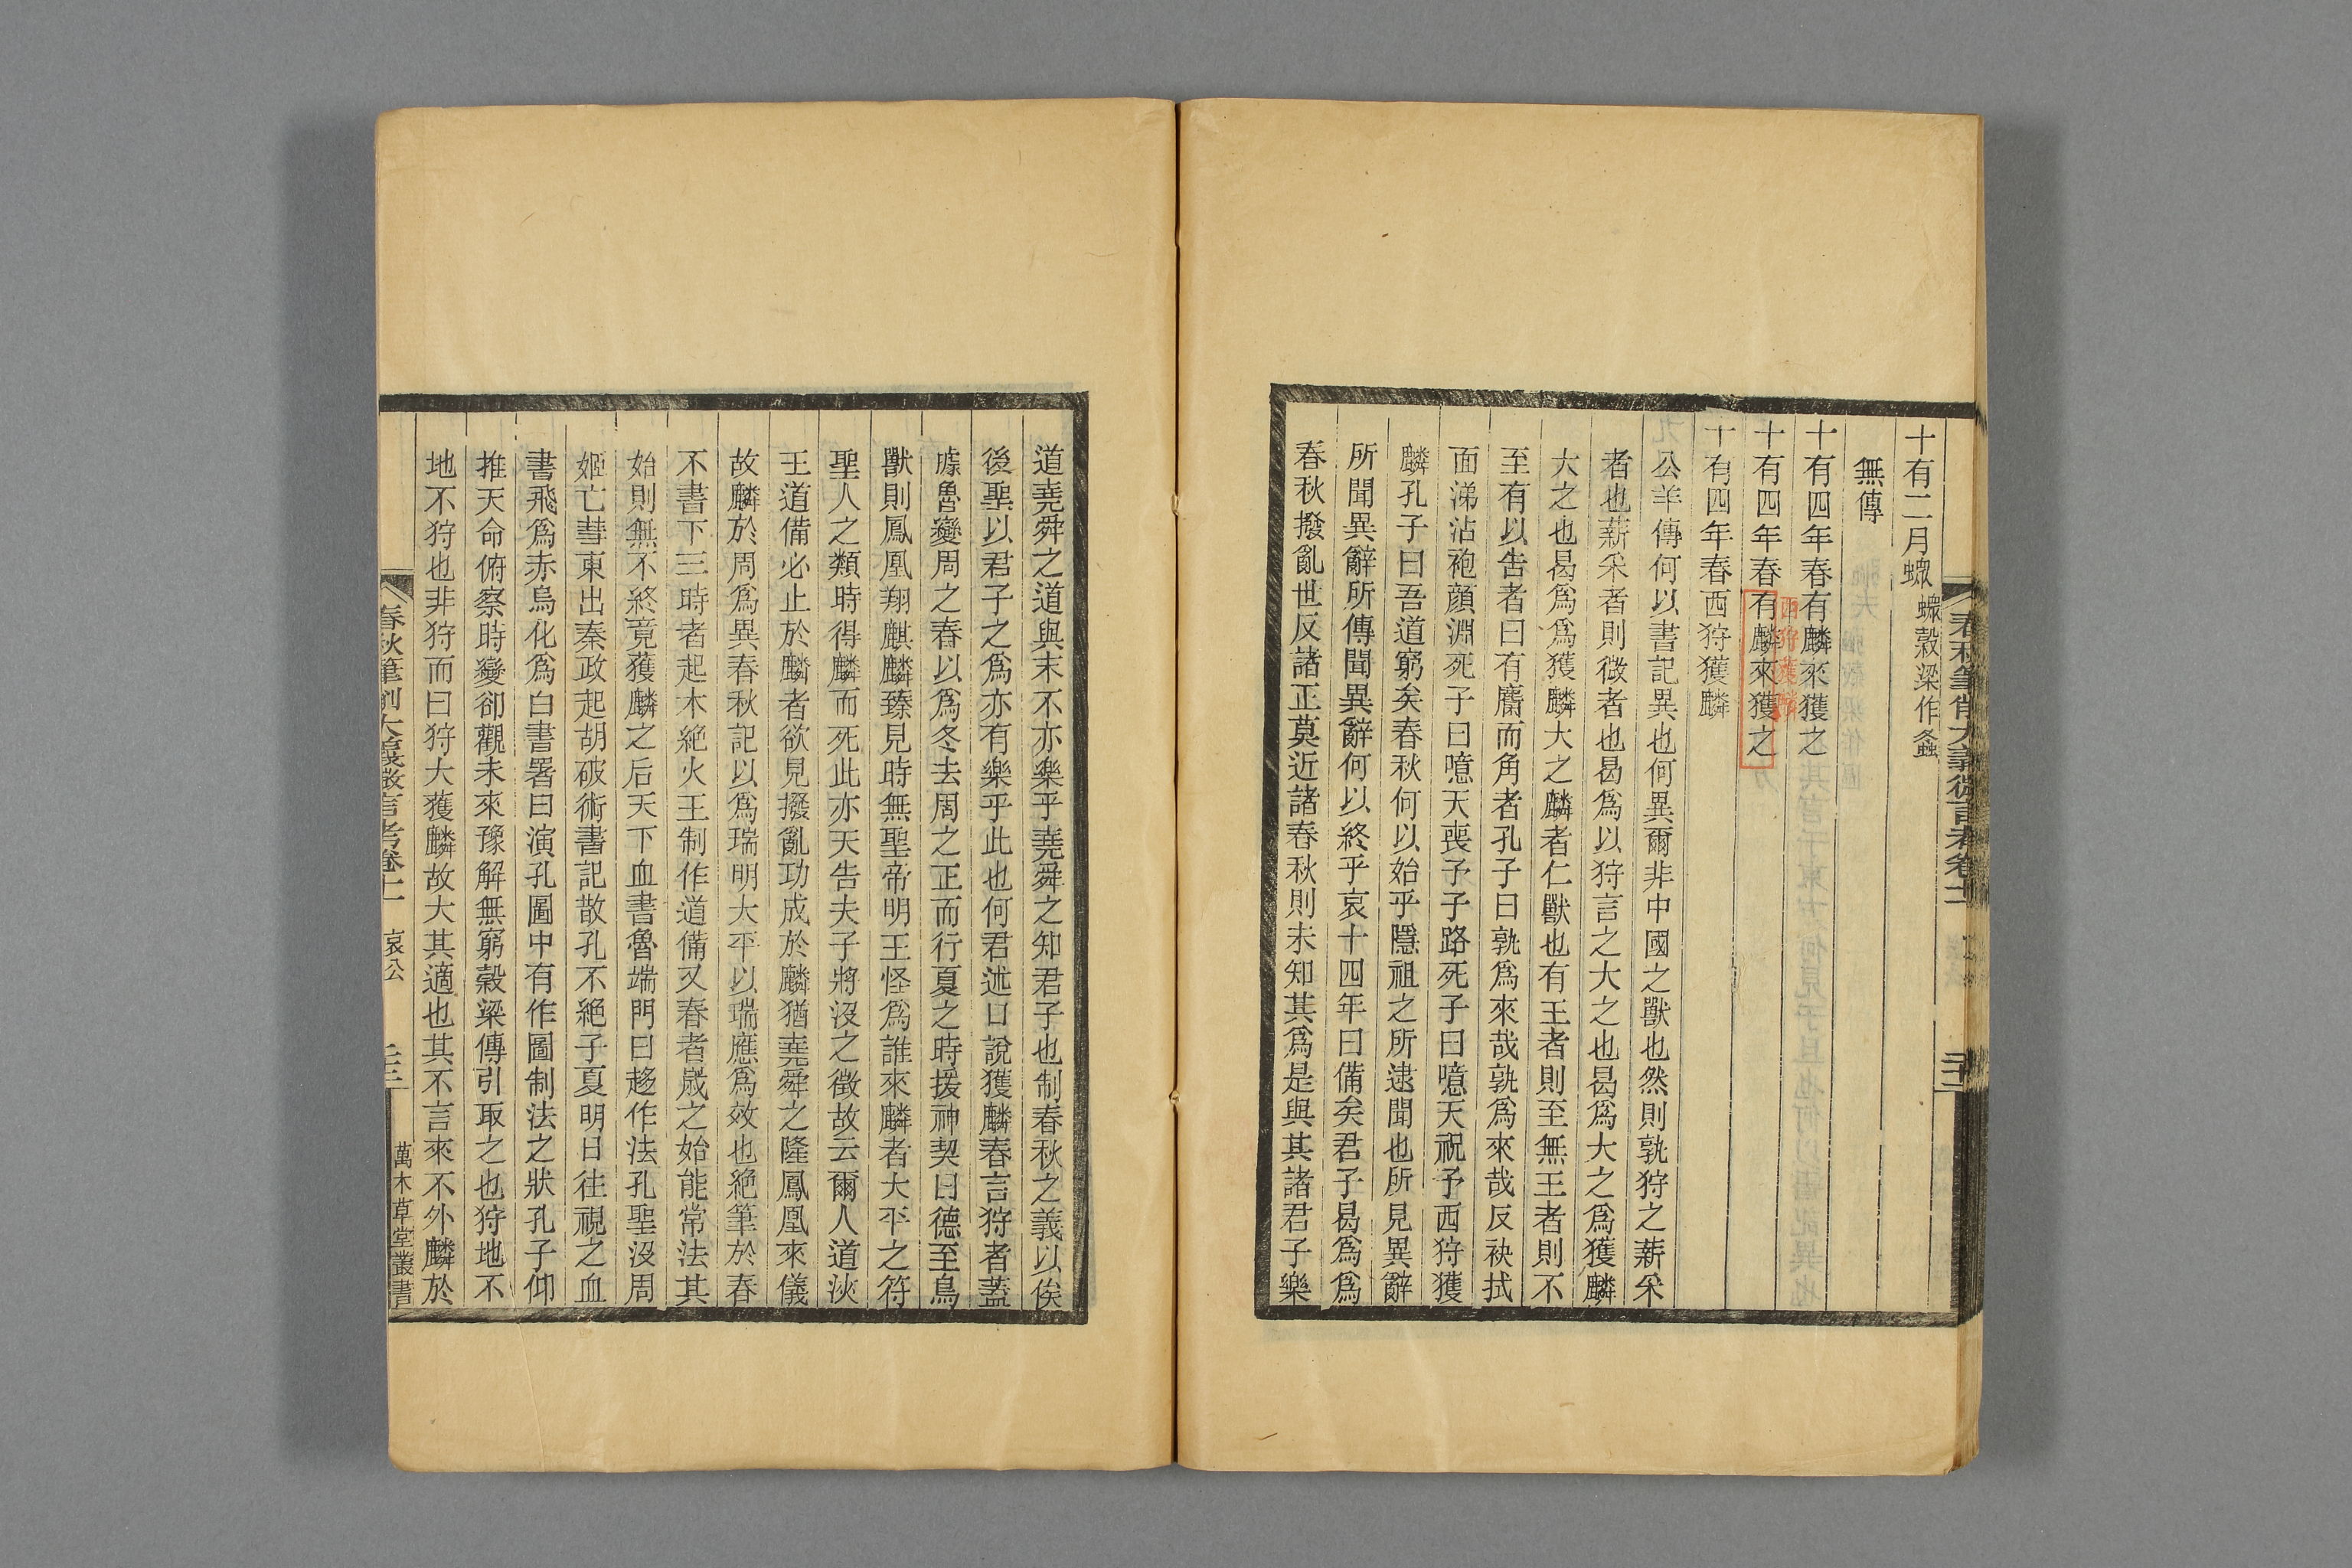 春秋筆削大義微言考卷十一
十有二月螽螽穀梁作螽
無傳
十有四年春有麟來獲之
西狩獲麟
十有四年春有麟來獲之
十有四年春西狩獲麟
公羊傳何以書記異也何異爾非中國之獸也然則孰狩之薪采
者也薪采者則微者也曷爲以狩言之大之也曷爲大之爲獲麟
大之也曷爲爲獲麟大之麟者仁獸也有王者則至無王者則不
至有以告者曰有麏而角者孔子曰孰爲來哉孰爲來哉反袂拭
面涕沾袍顔淵死子曰噫天喪予子路死子曰噫天祝予西狩獲
麟孔子曰吾道窮矣春秋何以始乎隱祖之所逮聞也所見異辭
所聞異辭所傳聞異辭何以終乎哀十四年曰備矣君子曷爲爲
春秋撥亂世反諸正莫近諸春秋則未知其爲是與其諸君子樂
道堯舜之道與末不亦樂乎堯舜之知君子也制春秋之義以俟
後聖以君子之爲亦有樂乎此也何君述口說獲麟春言狩者蓋
據魯變周之春以爲冬去周之正而行夏之時援神契曰德至鳥
獸則鳳凰翔麒麟臻見時無聖帝明王怪爲誰來麟者太平之符
聖人之類時得麟而死此亦天告夫子將沒之徵故云爾人道浹
王道備必止於麟者欲見撥亂功成於麟猶堯舜之隆鳳凰來儀
故麟於周爲異春秋記以爲瑞明大平以瑞應爲效也絕筆於春
不書下三時者起木絕火王制作道備又春者歲之始能常法其
始則無不終竟獲麟之后天下血書魯端門曰趍作法孔聖沒周
姬亡彗東出秦政起胡破術書記散孔不絕子夏明日往視之血
書飛爲赤烏化爲白書署曰演孔圖中有作圖制法之狀孔子仰
推天命俯察時變卻觀未來豫解無窮穀梁傳引取之也狩地不
地不狩也非狩而曰狩大獲麟故大其適也其不言來不外麟於
春秋筆削大義微言考卷十一 哀公
萬木草堂叢書